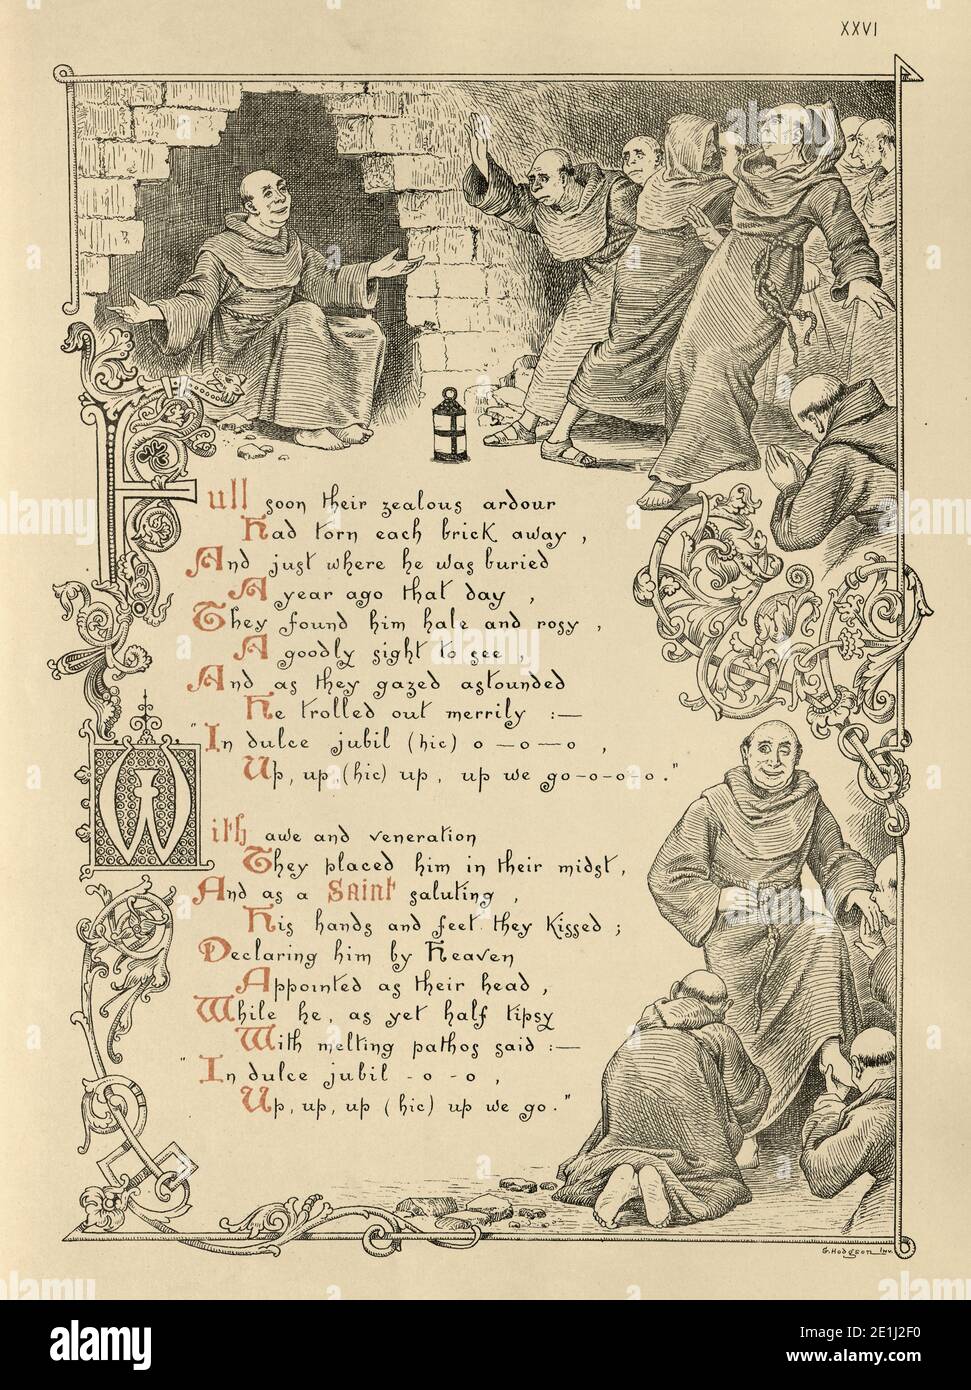 XXVI
Full soon their zealous ardour
Had torn each brick away,
And just where he was buried
A year ago that day,
They found him hale and rosy,
A goodly sight to see,
And as they gazed astounded
He trolled out merrily :—
"In dulce jubil (hic) o—o—o,
Up, up, (hic) up, up we go-o-o-o."
With awe and veneration
They placed him in their midst,
And as a Saint saluting,
His hands and feet they kissed;
Declaring him by Heaven
Appointed as their head,
While he, as yet half tipsy
With melting pathos said :—
"In dulce jubil -o-o,
Up, up, up (hic) up we go."
G. Hodgson Inv.
alamy
Image ID: 2E1J2F0
www.alamy.com